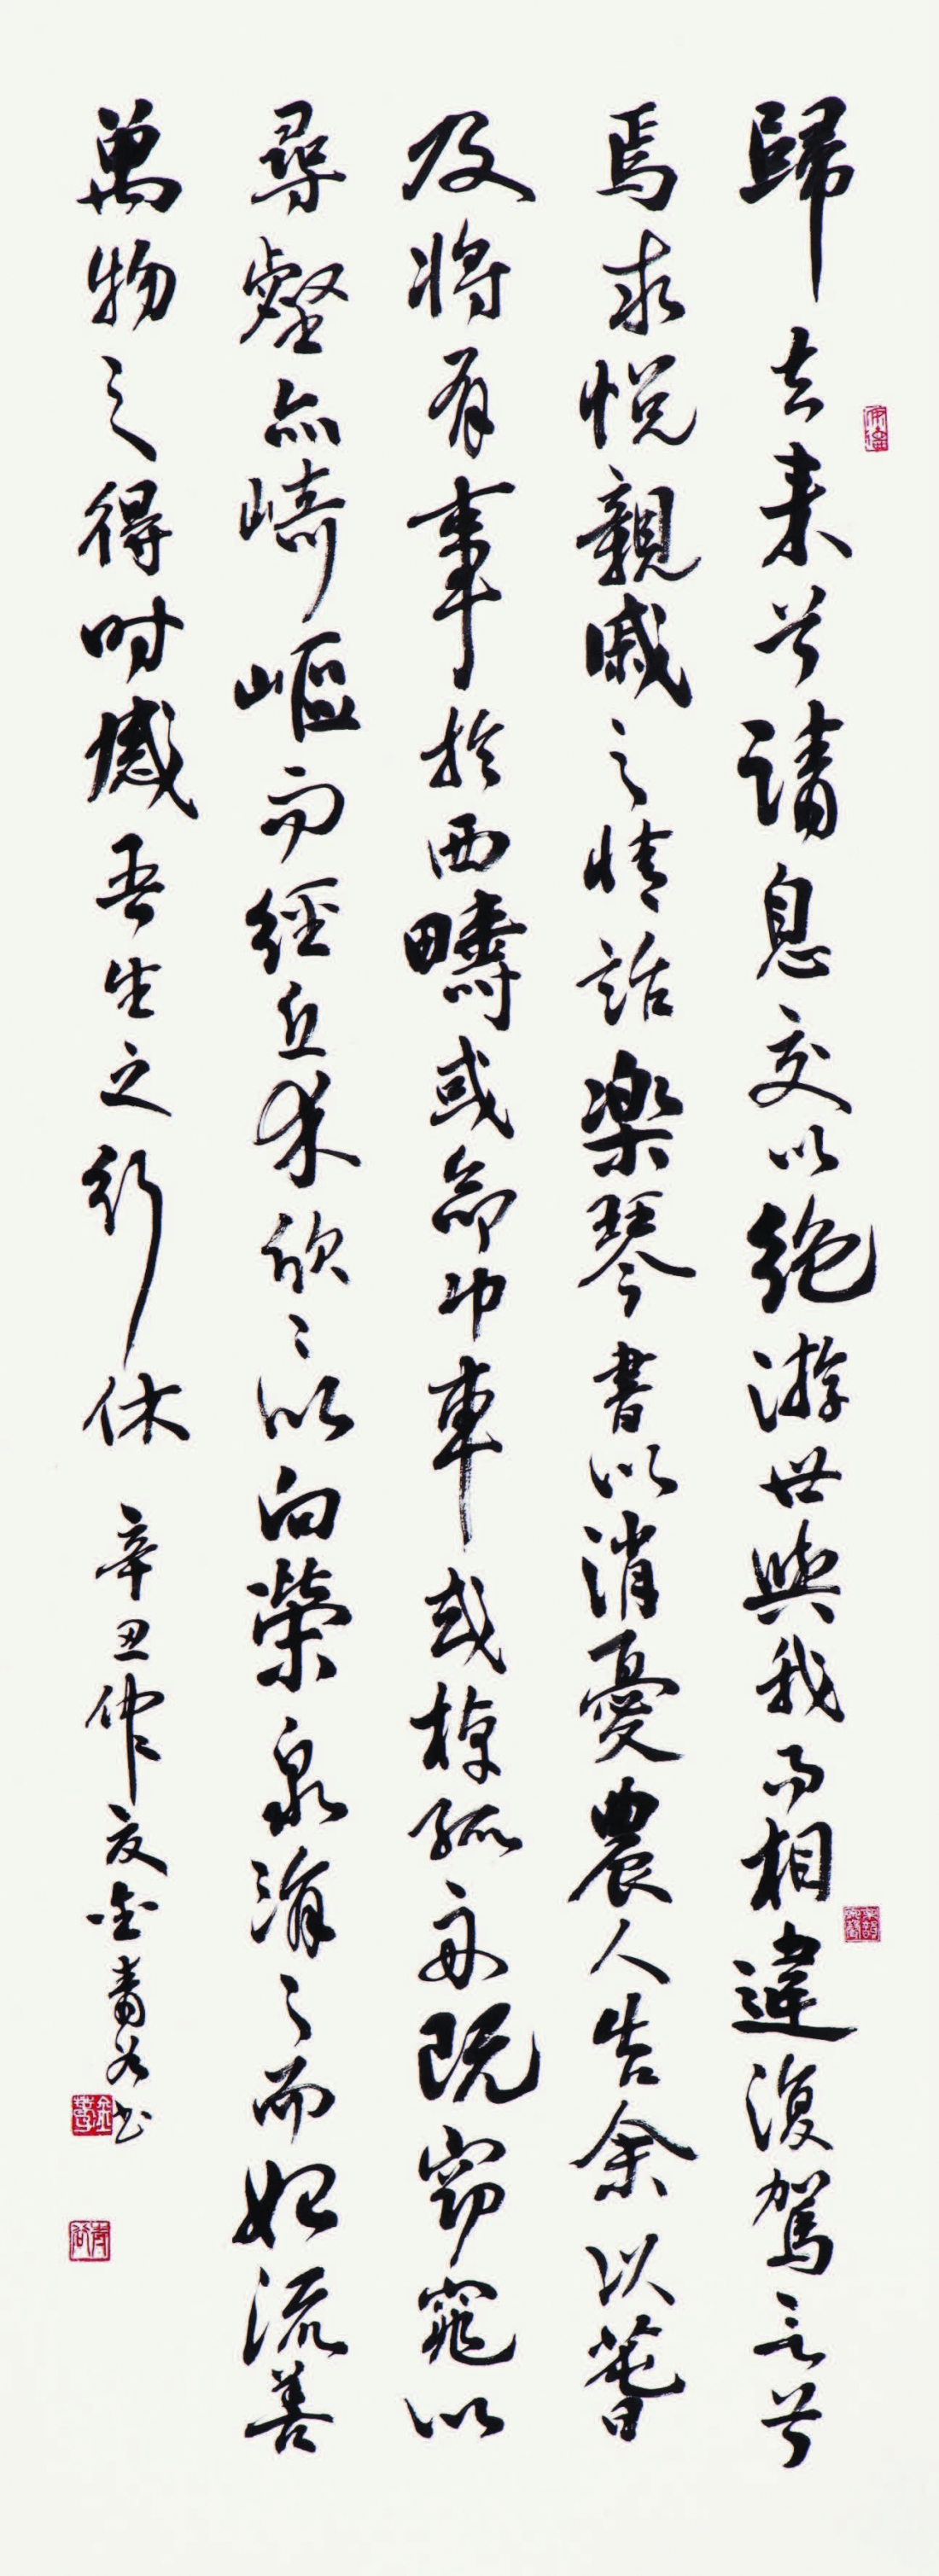 歸去来兮請息交以絶游世與我而相違復駕言兮
焉求悦親戚之情話楽琴書以消憂農人告余以萅
及將有事於西疇或命巾車或棹孤舟既窈窕以
尋壑亦崎嶇而經丘木欣々以向榮泉涓々而始流善
萬物之得時感吾生之行休 辛丑仲夏金书